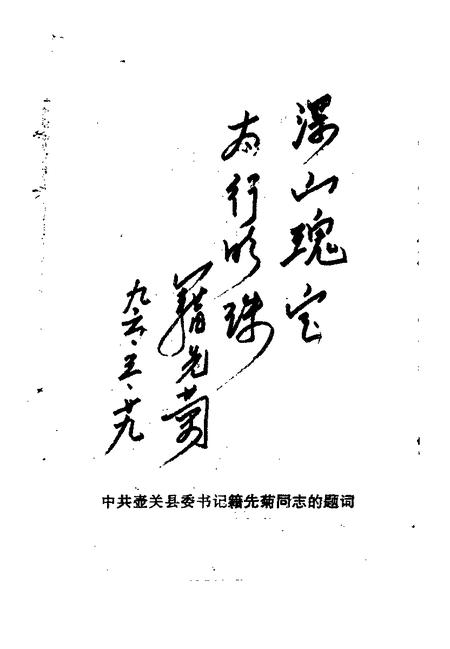 深山瑰宝
太行明珠
籍先菊
九六·三·廿九
中共壶关县委书记籍先菊同志的题词